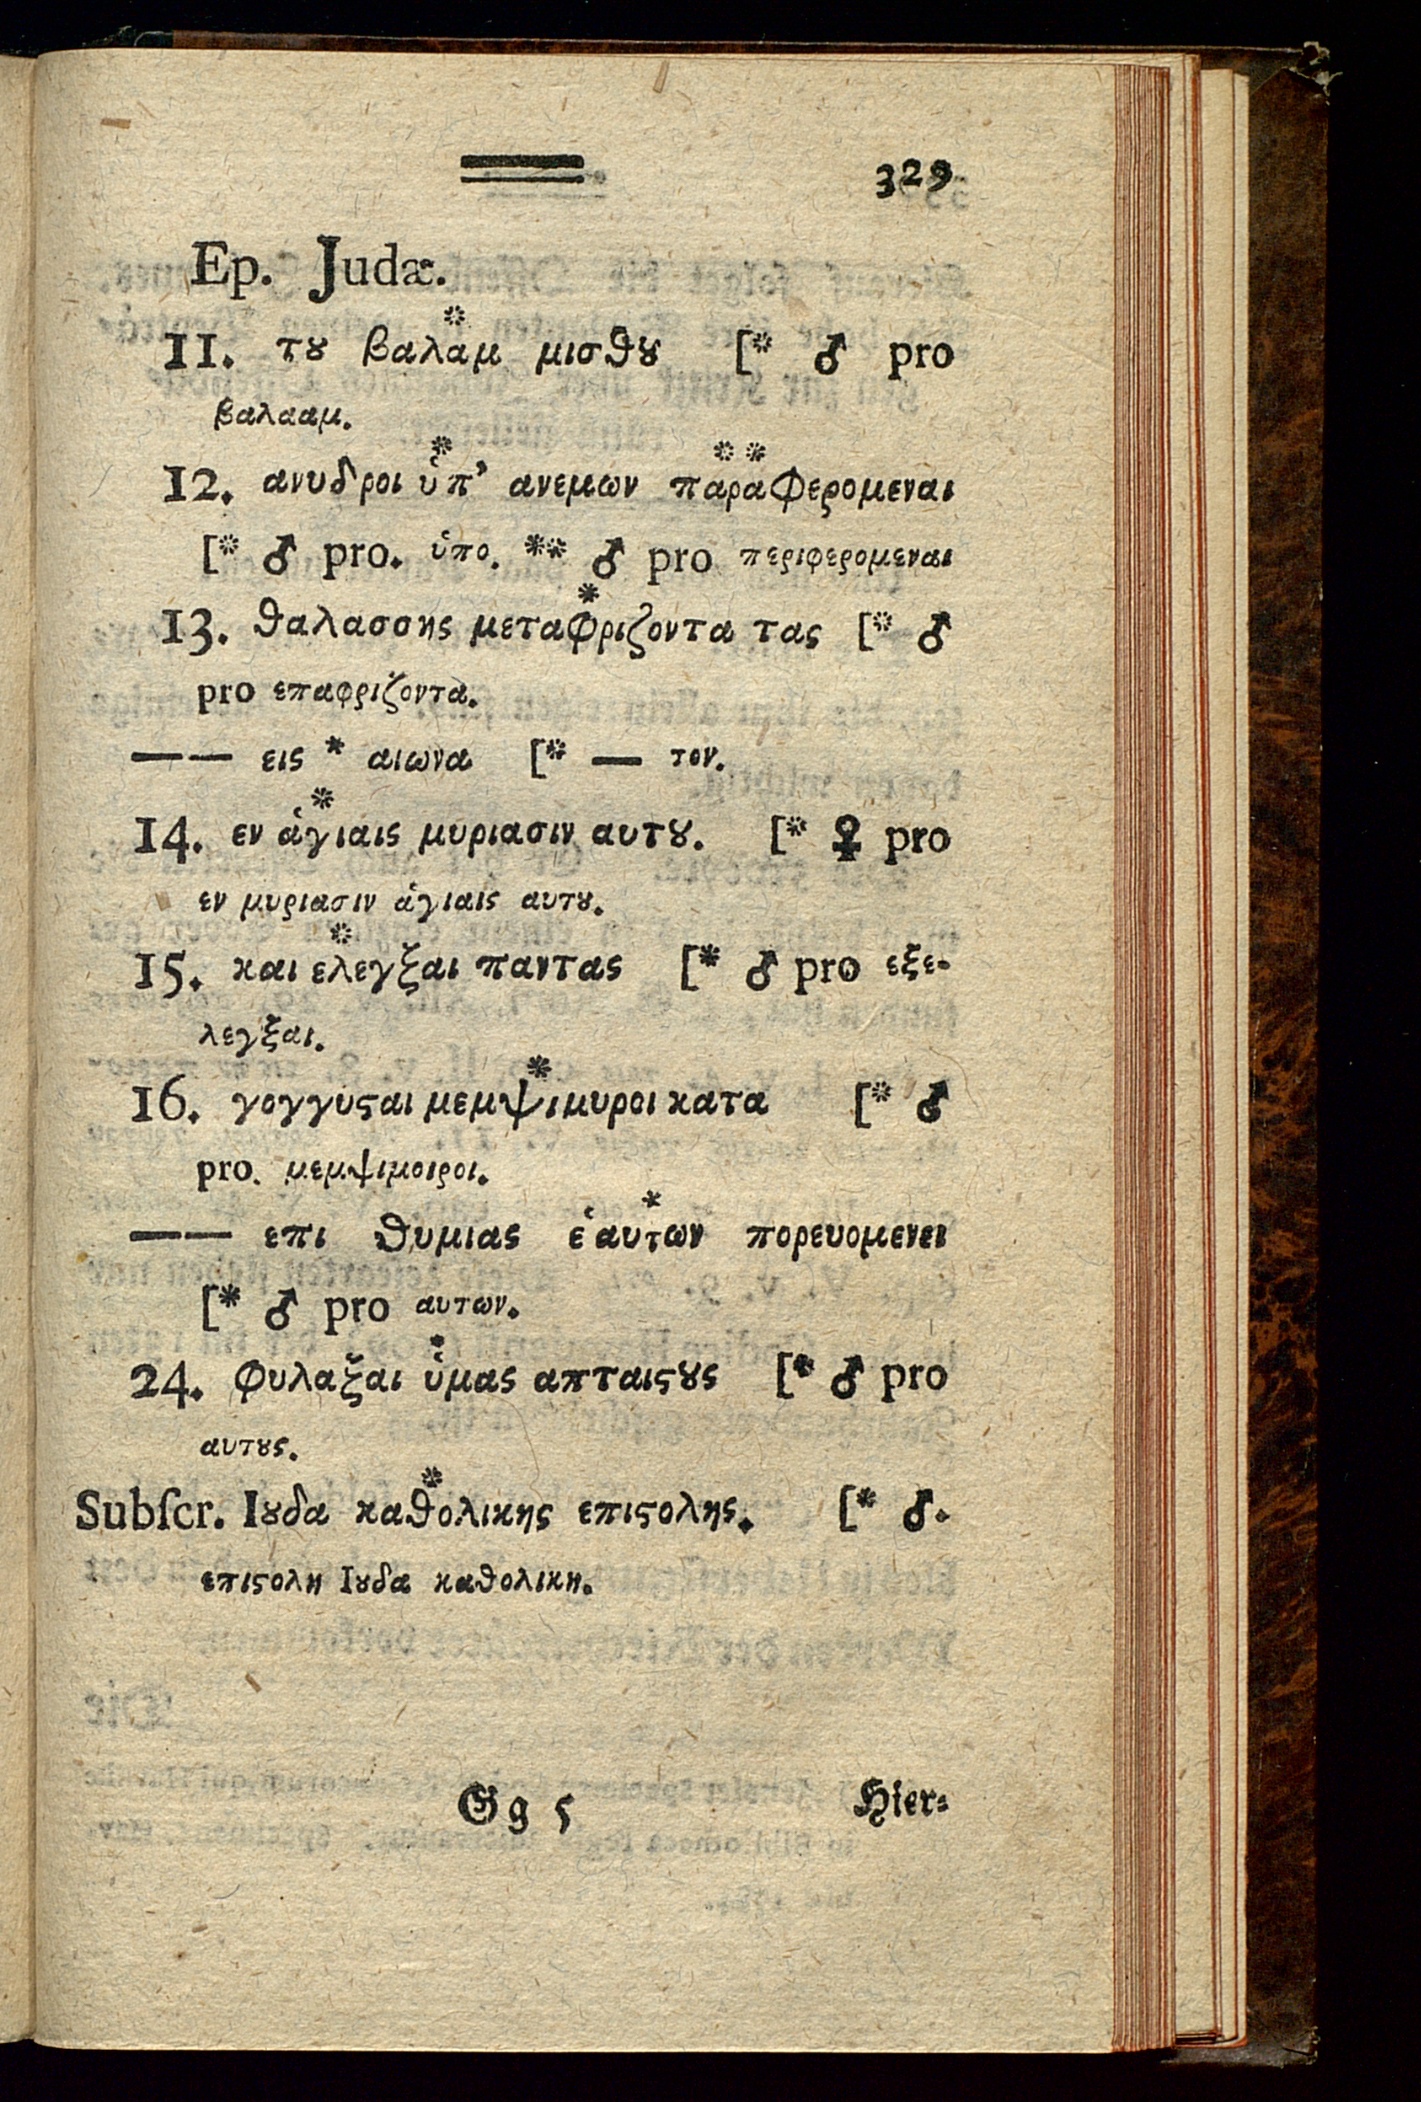 329
Ep. Judæ.
11. τȣ βαλα*μ μισθȣ [* ♂ pro
βαλααμ.
12. ανυδροι ὑ*π' ανεμων πα*ρα*φερομεναι
[* ♂ pro. ὑπο. ** ♂ pro περιφερομεναι
13. θαλασσης μετα*φριζοντα τας [* ♂
pro επαφριζοντα.
—— εις * αιωνα [* — τον.
14. εν ἁ*γιαις μυριασιν αυτȣ. [* ♀ pro
εν μυριασιν ἁγιαις αυτȣ.
15. και ε*λεγξαι παντας [* ♂ pro εξε-
λεγξαι.
16. γογγυϛαι μεμψ*ιμυροι κατα [* ♂
pro. μεμψιμοιροι.
—— επι θυμιας ἑαυτ*ων πορευομενει
[* ♂ pro αυτων.
24. φυλαξαι ὑ*μας απταιϛȣς [* ♂ pro
αυτȣς.
Subſcr. Ιȣδα καθ*ολικης επιϛολης. [* ♂.
επιϛολη Ιȣδα καθολικη.
Gg 5 Hier=